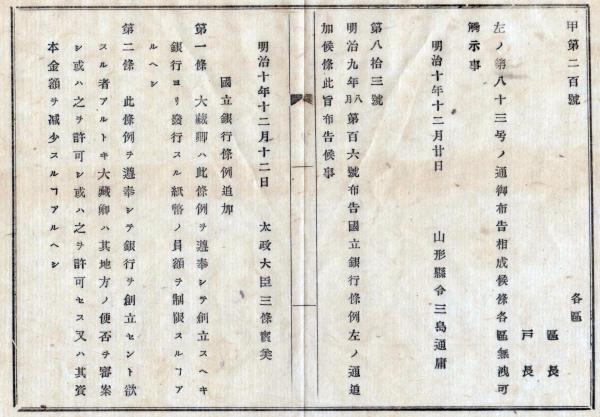 甲第二百號
各區
區長
戸長
左ノ第八十三号ノ通御布告相成候條各區無洩可
觸示事
明治十年十二月廿日　山形縣令三島通庸
第八拾三號
明治九年八月第百六號布告國立銀行條例左ノ通追
加候條此旨布告候事
明治十年十二月十二日　太政大臣三條實美
國立銀行條例追加
第一條　大藏卿ハ此條例ヲ遵奉シテ創立スヘキ
銀行ヨリ發行スル紙幣ノ員額ヲ制限スルヿア
ルヘシ
第二條　此條例ヲ遵奉シテ銀行ヲ創立セント欲
スル者アルトキ大藏卿ハ其地方ノ便否ヲ審案
シ或ハ之ヲ許可シ或ハ之ヲ許可セス又ハ其資
本金額ヲ减少スルヿアルヘシ